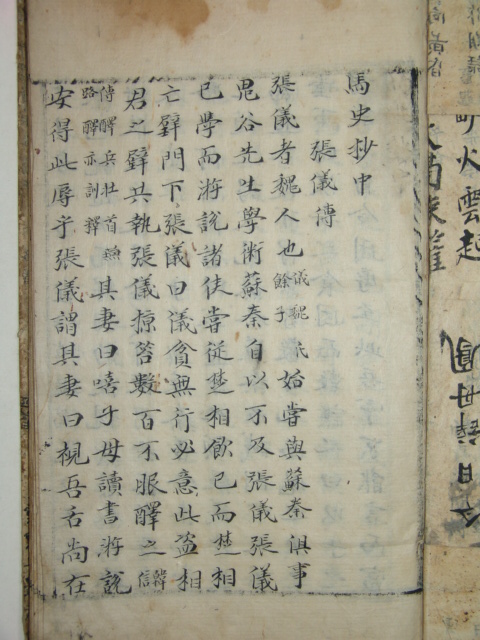 馬史抄中
張儀傳
張儀者魏人也儀魏氏餘子始嘗與蘇秦俱事
鬼谷先生學術蘇秦自以不及張儀張儀
已學而游說諸侯嘗從楚相飮已而楚相
亡璧門下意張儀曰儀貧無行必此盜相
君之璧共執張儀掠笞數百不服醳之韓信
傳醳兵壯首燕路醳亦訓釋其妻曰嘻子毋讀書游說
安得此辱乎張儀謂其妻曰視吾舌尚在
火雲起
日